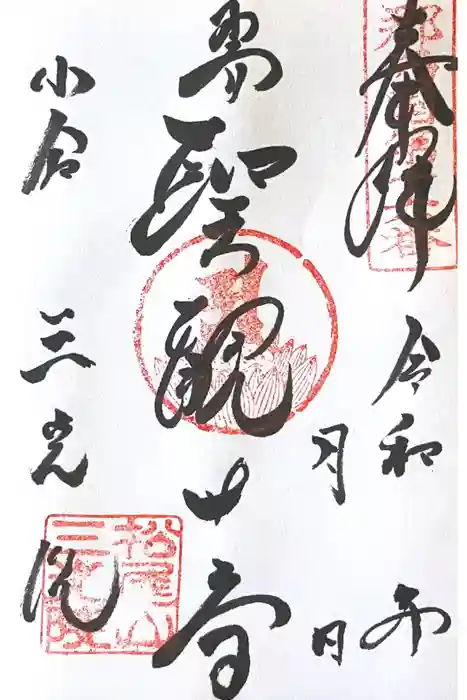 奉拝
令和 年
月 日
聖観世音
小倉 三光院
松尾山
三光院